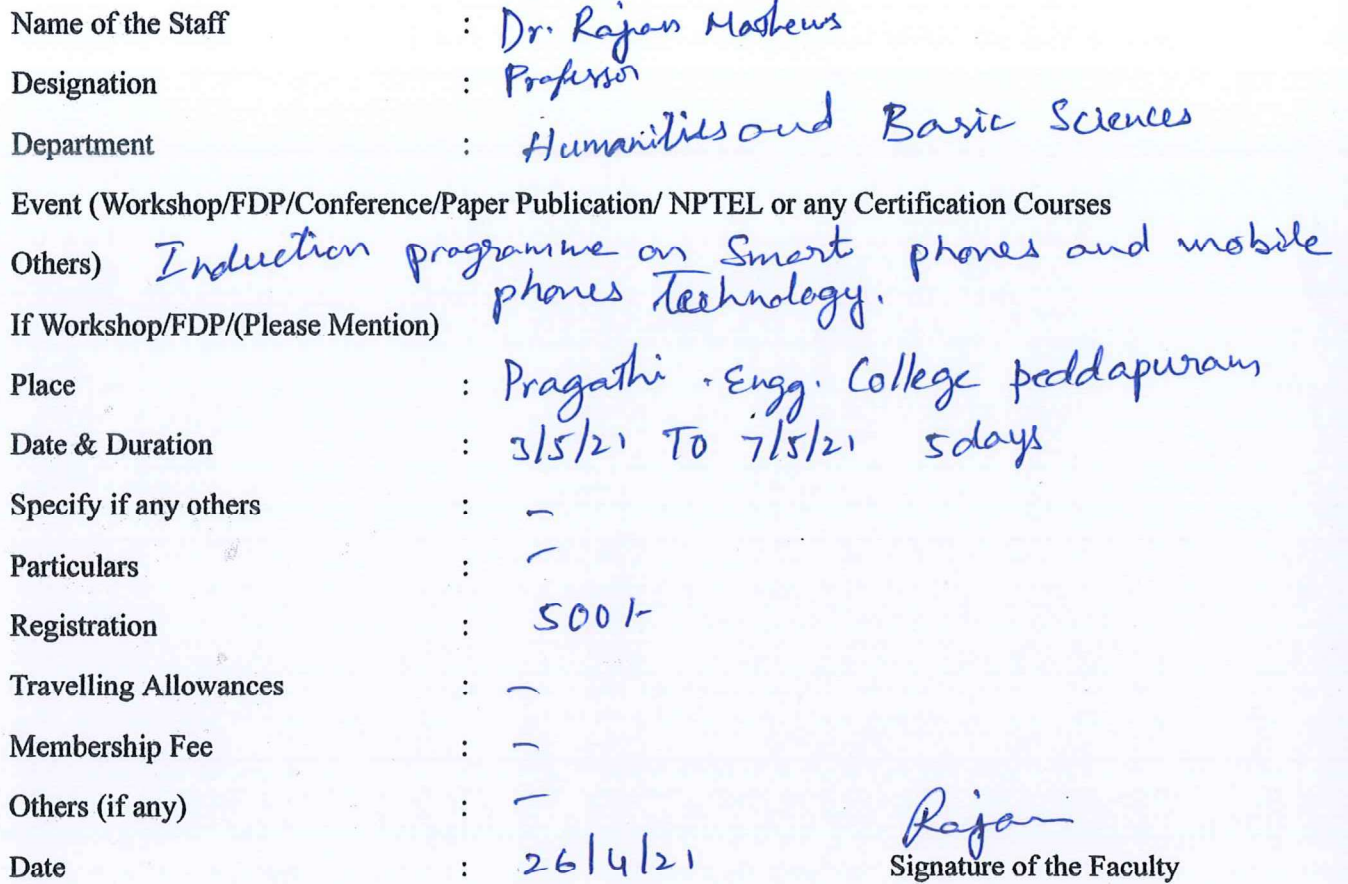 Name of the Staff : Dr. Rajan Mathews
Designation : Professor
Department : Humanities and Basic Sciences
Event (Workshop/FDP/Conference/Paper Publication/ NPTEL or any Certification Courses
Others) Induction programme on Smart phones and mobile
phones Technology.
If Workshop/FDP/(Please Mention)
Place : Pragathi . Engg. College peddapuram
Date & Duration : 3/5/21 To 7/5/21 5 days
Specify if any others : -
Particulars : -
Registration : 500/-
Travelling Allowances : -
Membership Fee : -
Others (if any) : -
Rajan
Date : 26/4/21 Signature of the Faculty